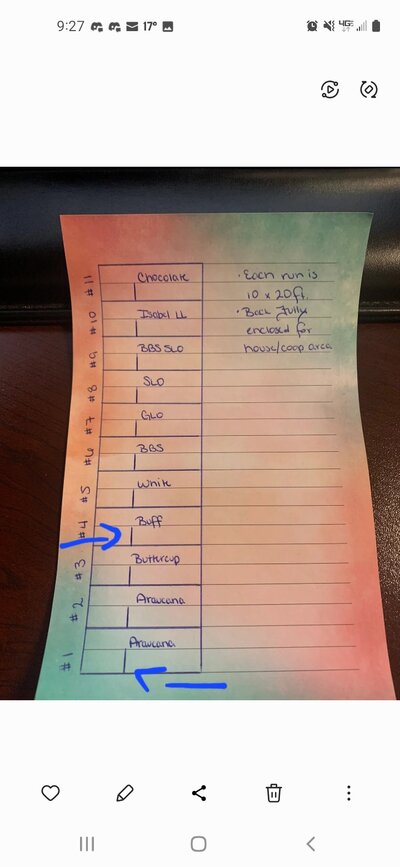 9:27 17° 4GE
#11 Chocolate
#10 Isabel LL
#9 BBS SLO
#8 SLO
#7 GLO
#6 BBS
#5 White
#4 Buff
#3 Buttercup
#2 Araucana
#1 Araucana
· Each run is
10 x 20ft.
· Back fully
enclosed for
house/coop area